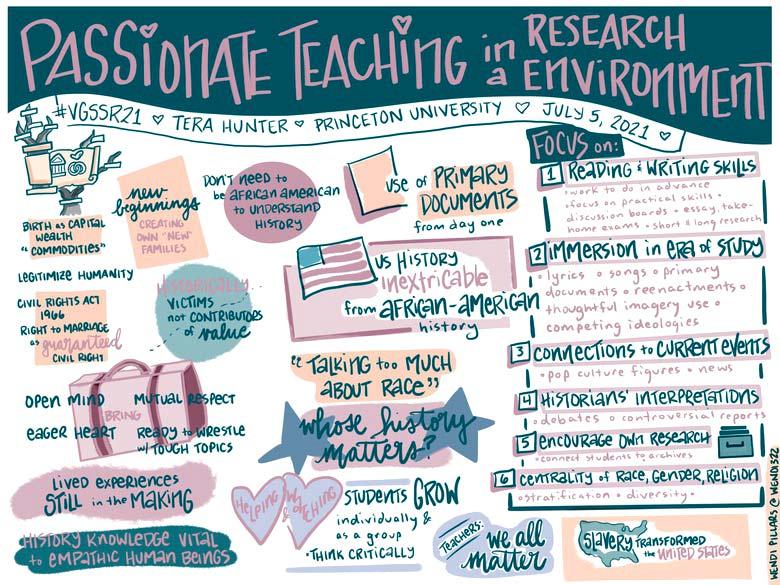 PASSIONATE TEACHING in a RESEARCH ENVIRONMENT
#VGSSR21 ♡ TERA HUNTER ♡ PRINCETON UNIVERSITY ♡ JULY 5, 2021 ♡
BIRTH as CAPITAL
WEALTH
"COMMODITIES"
LEGITIMIZE HUMANITY
CIVIL RIGHTS ACT
1966
RIGHT to MARRIAGE
as guaranteed
CIVIL RIGHT
new
beginnings
CREATING
OWN "NEW"
FAMILIES
DON'T NEED to
be AFRICAN AMERICAN
to UNDERSTAND
HISTORY
HISTORICALLY
VICTIMS
not CONTRIBUTORS
of value
OPEN MIND
MUTUAL RESPECT
BRING
EAGER HEART
READY to WRESTLE
w/ TOUGH TOPICS
LIVED EXPERIENCES
STILL in the MAKING
HISTORY KNOWLEDGE VITAL
to EMPATHIC HUMAN BEINGS
USE of PRIMARY
DOCUMENTS
from DAY ONE
US HISTORY
inextricable
from AFRICAN-AMERICAN
history
"TALKING too MUCH
ABOUT RACE"
whose history
matters?
HELPING &
STUDENTS GROW
individually &
as a group
• THINK CRITICALLY
TEACHERS:
we all
matter
FOCUS on:
1 READING & WRITING SKILLS
• work to do in advance
• focus on practical skills •
discussion boards • essay, take-
home exams • short & long research
2 IMMERSION in ERA of STUDY
• lyrics • songs • primary
documents • reenactments •
thoughtful imagery use •
competing ideologies
3 CONNECTIONS to CURRENT EVENTS
• pop culture figures • news
4 HISTORIANS' INTERPRETATIONS
• debates • controversial reports
5 ENCOURAGE OWN RESEARCH
• connect students to archives
6 CENTRALITY of RACE, GENDER, RELIGION
• stratification • diversity •
SLAVERY TRANSFORMED
the UNITED STATES
WENDI PILLARS @WENDI322